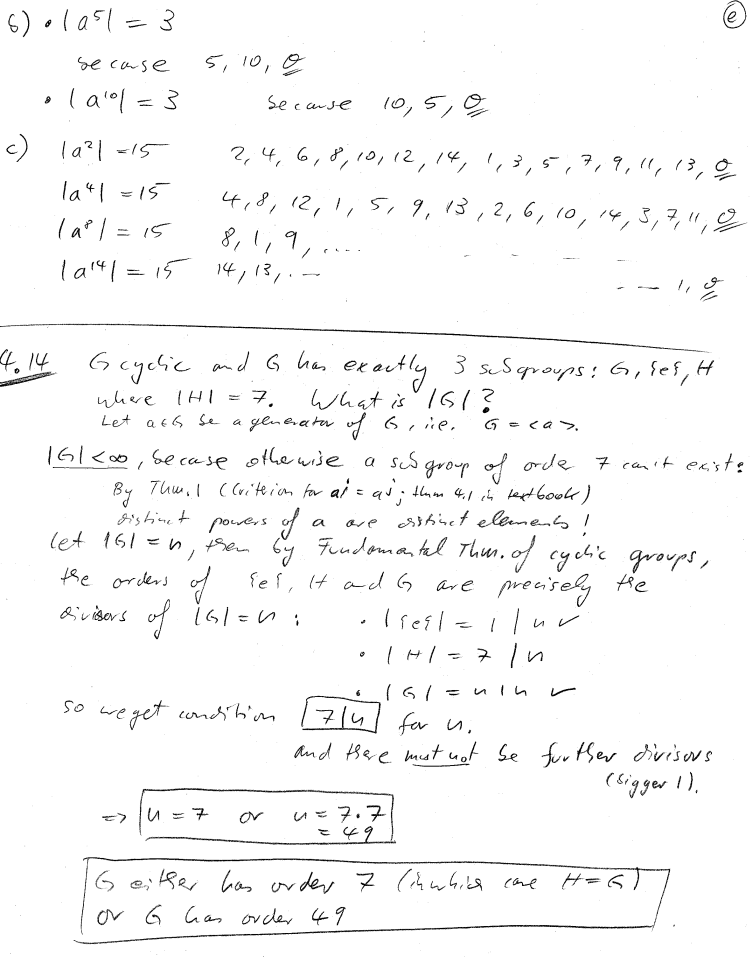 b) • |a⁵| = 3 ⓔ
because 5, 10, 0
• |a¹⁰| = 3 because 10, 5, 0
c) |a²| = 15 2, 4, 6, 8, 10, 12, 14, 1, 3, 5, 7, 9, 11, 13, 0
|a⁴| = 15 4, 8, 12, 1, 5, 9, 13, 2, 6, 10, 14, 3, 7, 11, 0
|a⁸| = 15 8, 1, 9, ....
|a¹⁴| = 15 14, 13, .— — — 1, 0
4.14 G cyclic and G has exactly 3 subgroups: G, {e}, H
where |H| = 7. What is |G|?
Let a∈G be a generator of G, i.e. G = <a>.
|G| < ∞, because otherwise a subgroup of order 7 can't exist:
By Thm. 1 (Criterion for aⁱ = aʲ; thm 4.1 in textbook)
distinct powers of a are distinct elements!
Let |G| = n, then by Fundamental Thm. of cyclic groups,
the orders of {e}, H and G are precisely the
divisors of |G| = n : • |{e}| = 1 | n ✓
• |H| = 7 | n
• |G| = n | n ✓
so we get condition 7|n for n.
and there must not be further divisors
(bigger 1).
=> n = 7 or n = 7·7
= 49
G either has order 7 (in which case H = G)
or G has order 49